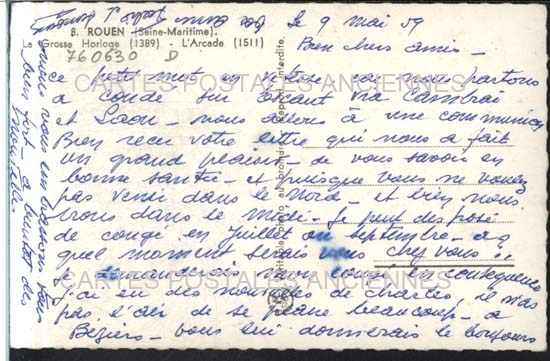 8. ROUEN (Seine-Maritime).
Le Grosse Horloge (1389) - L'Arcade (1511)
760630 D
le 9 mai 59
Bien chers amis -
ce petit mot en vitesse car nous partons
a Condé sur Escaut via Cambrai
et Laon - nous allons à une communion
Bien recu votre lettre qui nous a fait
un grand plaisir - de vous savoir en
bonne santé - et puisque vous ne voulez
pas venir dans le Nord - et bien nous
irons dans le Midi - Je peut des posé
de congé en Juillet ou septembre - a
quel moment serais vous chez vous !!
je demanderais mon congé en consequence
J'ai eu des nouvelles de charles il n'as
pas l'air de se plaire beaucoup - a
Béziers - vous lui donnerais le bonjours
nous vous embrassons tous
bien fort - a bientôt des
nouvelles
CARTES POSTALES ANCIENNES
CARTES POSTALES ANCIENNES
CARTES POSTALES ANCIENNES